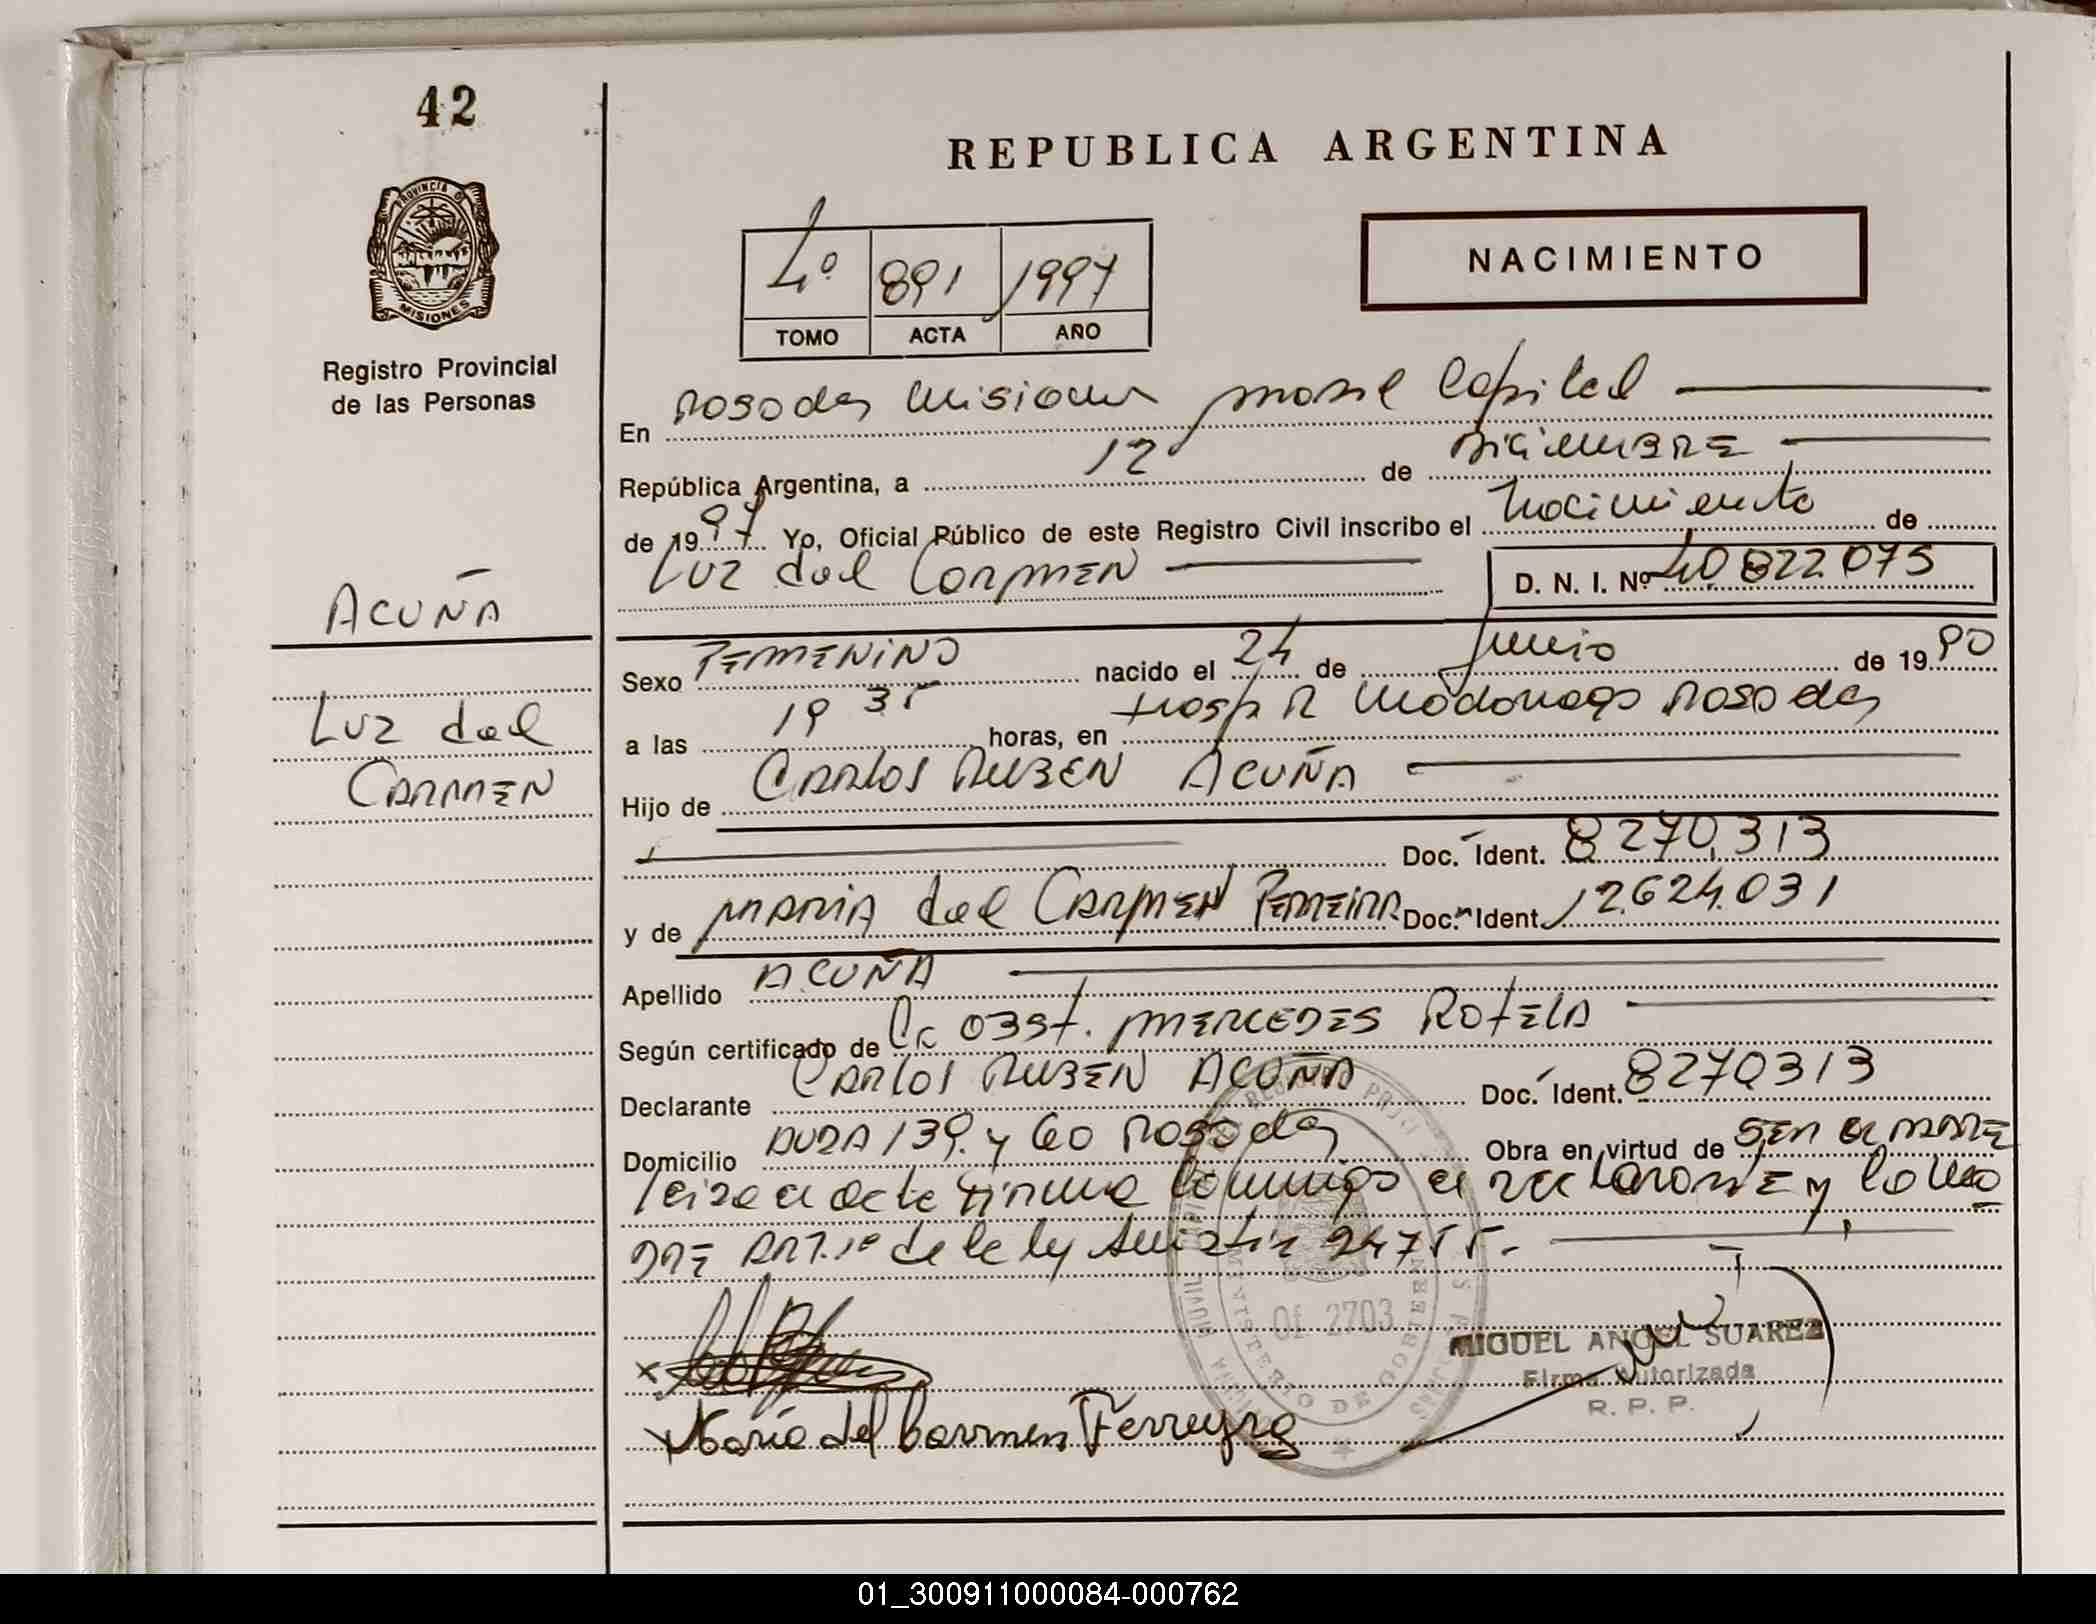 42
REPUBLICA ARGENTINA
PROVINCIA DE
MISIONES
Registro Provincial
de las Personas
NACIMIENTO
4º 891 1997
TOMO ACTA AÑO
En Posadas Misiones Capital
República Argentina, a 12 de DiciemBRE
de 1997 Yo, Oficial Público de este Registro Civil inscribo el Nacimiento de
Luz del CARMEN D. N. I. Nº 40.822.075
ACUÑA
Luz del
CARMEN
Sexo FEMENINO nacido el 24 de Junio de 1990
a las 19 35 horas, en Hosp R Madariaga Posadas
Hijo de CARLOS RUBEN ACUÑA
Doc. Ident. 8270.313
y de MARIA del CARMEN FERREIRA Doc. Ident. 12.624.031
Apellido ACUÑA
Según certificado de OBST. MERCEDES ROTELA
Declarante CARLOS RUBEN ACUÑA Doc. Ident. 8270313
Domicilio 139 y 60 Posadas Obra en virtud de SER el PADRE
Leida el acta Firma conmigo el declarante y la MA
DRE ART. 1º de la ley 24755.
Of 2703
MINISTERIO DE GOBIERNO
MIGUEL ANGEL SUAREZ
Firma Autorizada
R. P. P.
María del Carmen Ferreyra
01_300911000084-000762